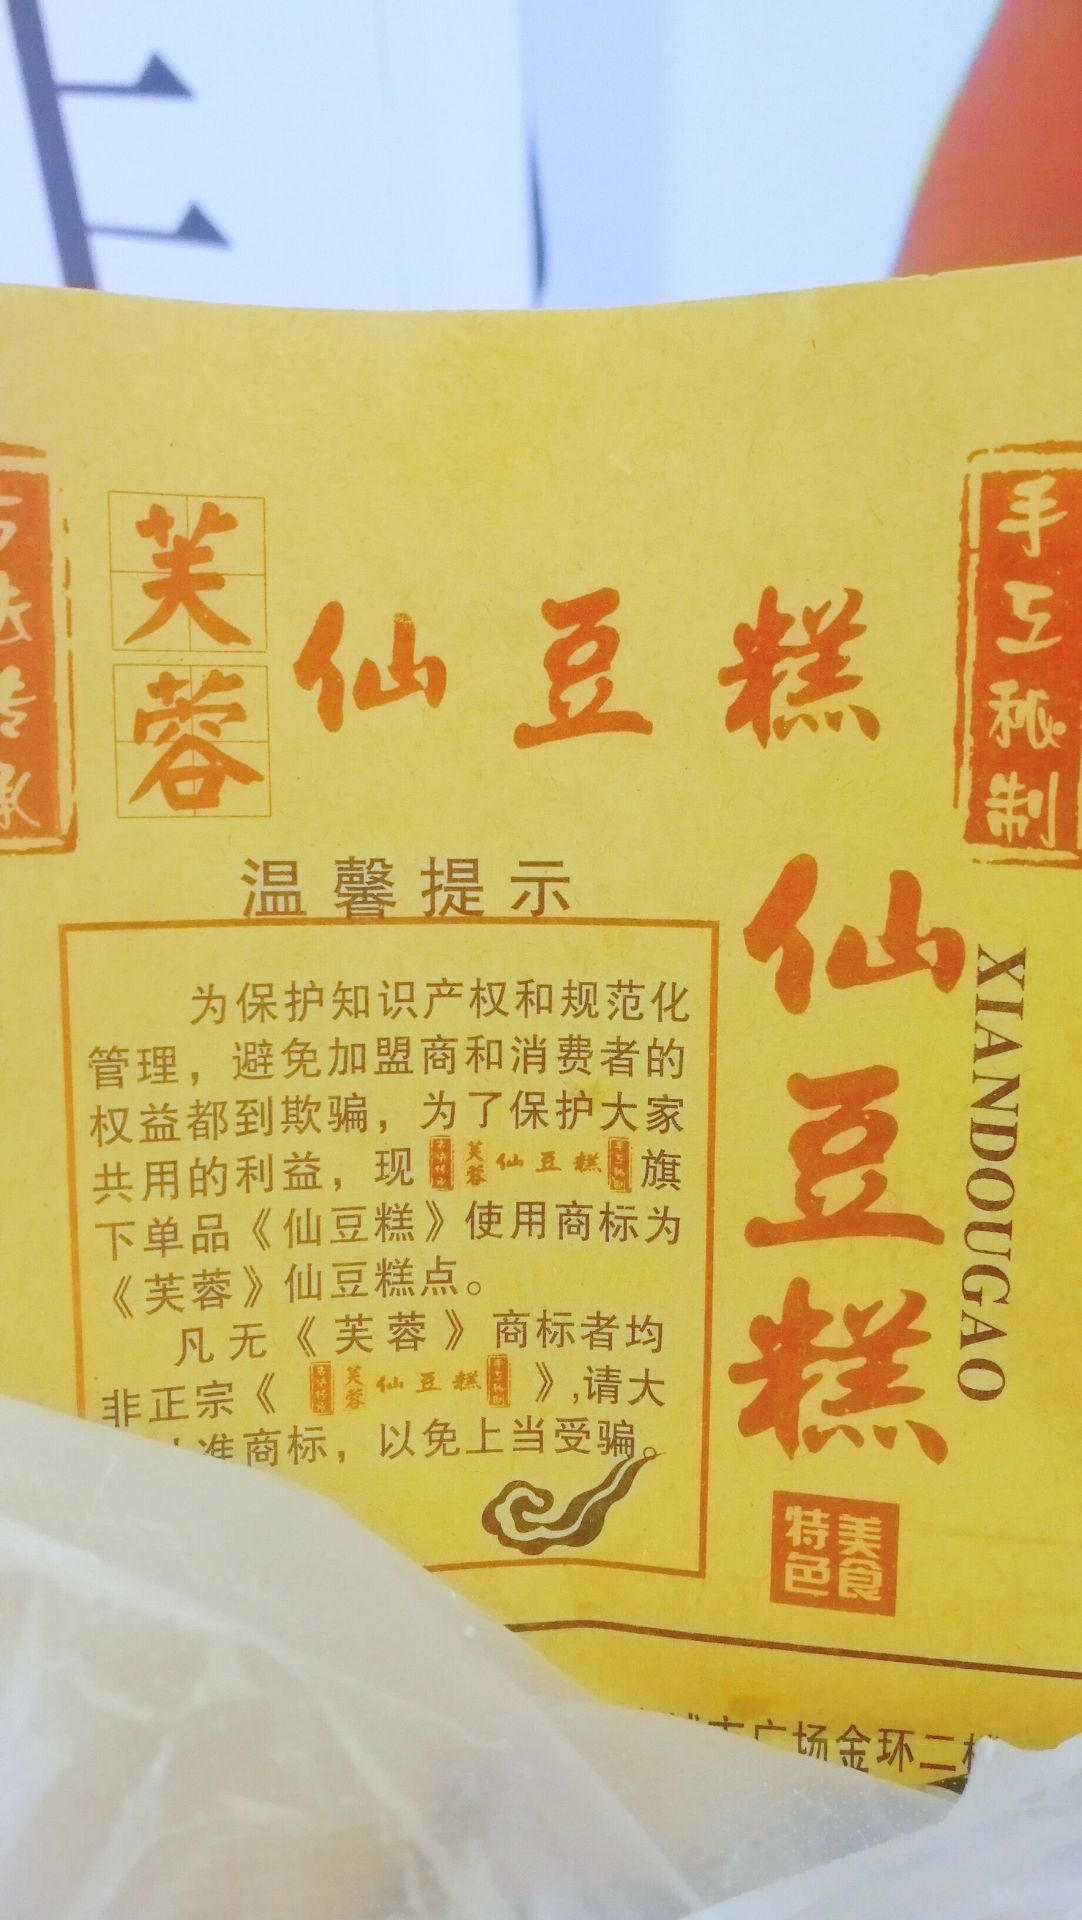 古法传承
芙蓉
仙豆糕
手工秘制
温馨提示
为保护知识产权和规范化
管理，避免加盟商和消费者的
权益都到欺骗，为了保护大家
共用的利益，现 芙蓉仙豆糕 旗
下单品《仙豆糕》使用商标为
《芙蓉》仙豆糕点。
凡无《芙蓉》商标者均
非正宗《 芙蓉仙豆糕 》,请大
准商标，以免上当受骗。
仙豆糕
XIANDOUGAO
特色美食
广场金环二